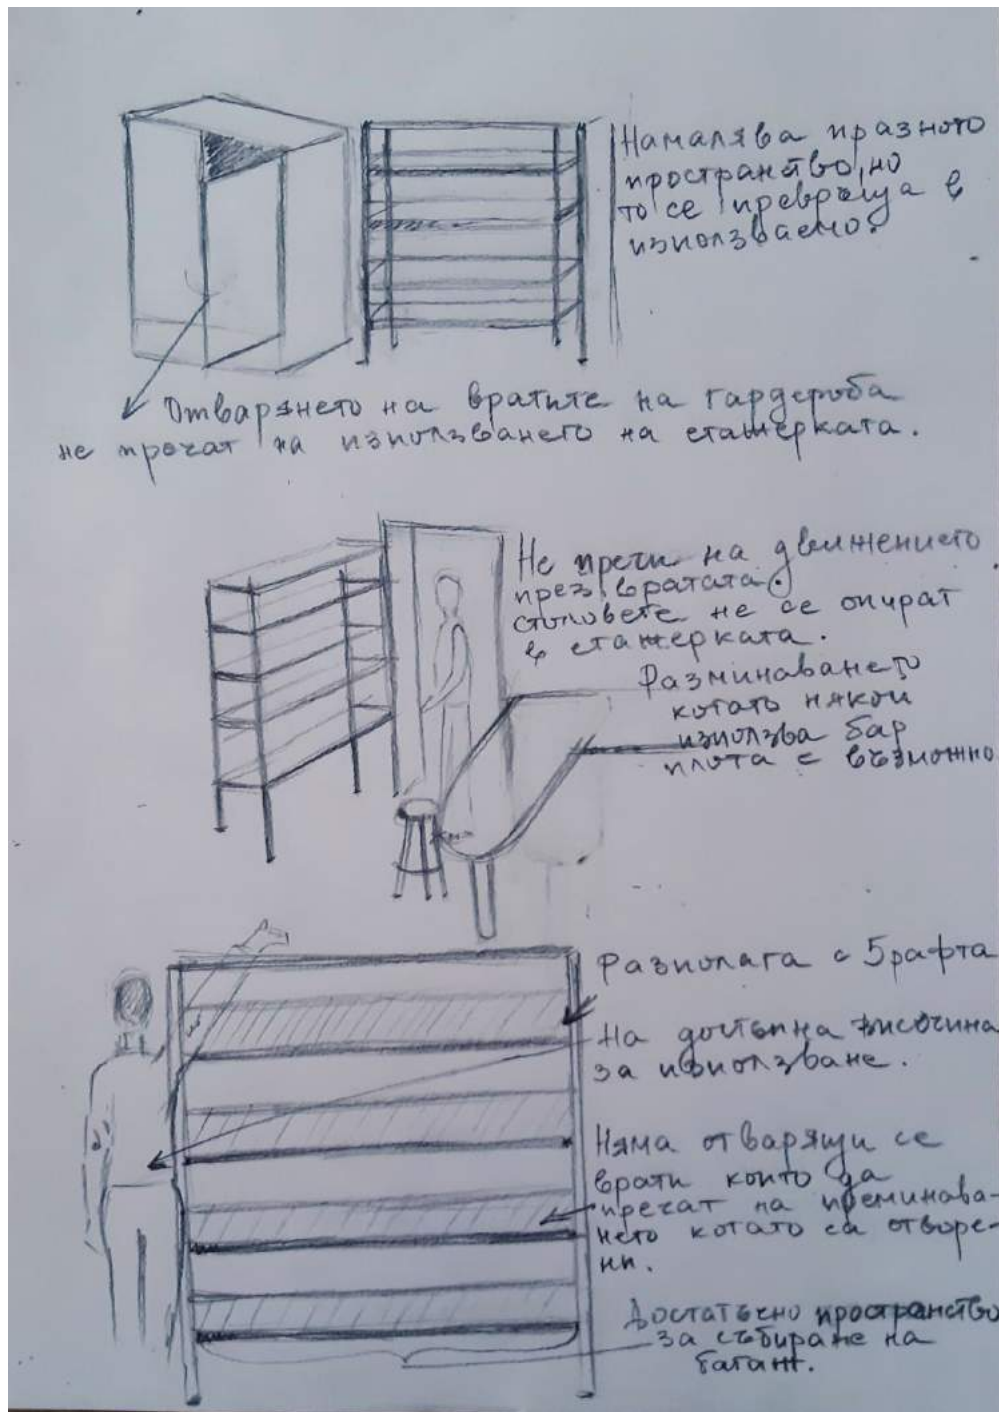 Намалява празното
пространство, но
то се превръща в
използваемо.
Отварянето на вратите на гардероба
не пречат на използването на етажерката.
Не пречи на движението
през вратата.
столовете не се опират
в етажерката.
Разминаването
когато някои
използва бар
плота е възможно
Разполага с 5 рафта
На достъпна височина
за използване.
Няма отварящи се
врати които да
пречат на преминава-
нето когато са отворе-
ни.
Достатъчно пространство
за събиране на
багаж.